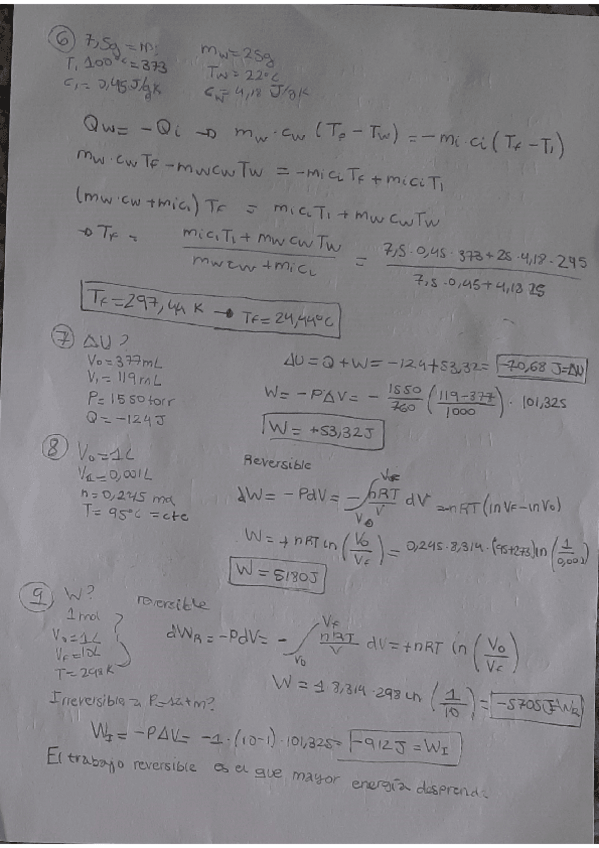 ⑥ 7,5g = mi
T₁ 100°C = 373
Ci = 0,45 J/gK
mw = 25g
Tw = 22°C
Cw = 4,18 J/gK
Qw = -Qi → mw·cw (Tf - Tw) = -mi·ci (Tf - T1)
mw·cw Tf - mwcw Tw = -mici Tf + mici T1
(mw·cw + mici) Tf = miciT1 + mwcwTw
→ Tf = miciT1 + mwcwTw / mwcw + mici = 7,5·0,45·373 + 25·4,18·295 / 7,5·0,45 + 4,18 25
Tf = 297,44 K → Tf = 24,44°C
⑦ ΔU?
V0 = 377mL
V1 = 119mL
P = 1550 torr
Q = -124 J
ΔU = Q + W = -124 + 53,32 = -70,68 J = ΔU
W = -PΔV = - 1550/760 (119-377/1000) · 101,325
W = +53,32 J
⑧ V0 = 1L
Vf = 0,001L
n = 0,245 mol
T = 95°C = cte
Reversible
dW = -PdV = -∫V0 Vf nRT/V dV = -nRT (lnVf - lnV0)
W = +nRT ln (V0/Vf) = 0,245·8,314·(95+273) ln (1/0,001)
W = 5180J
⑨ W?
1 mol
V0 = 1L
Vf = 10L
T = 298K
reversible
dWR = -PdV = -∫V0 Vf nRT/V dV = +nRT ln (V0/Vf)
W = 1 8,314·298 ln (1/10) = -5705 J = WR
Irreversible a P = 1atm?
WI = -PΔV = -1·(10-1)·101,325 = -912 J = WI
El trabajo reversible es el que mayor energía desprende.